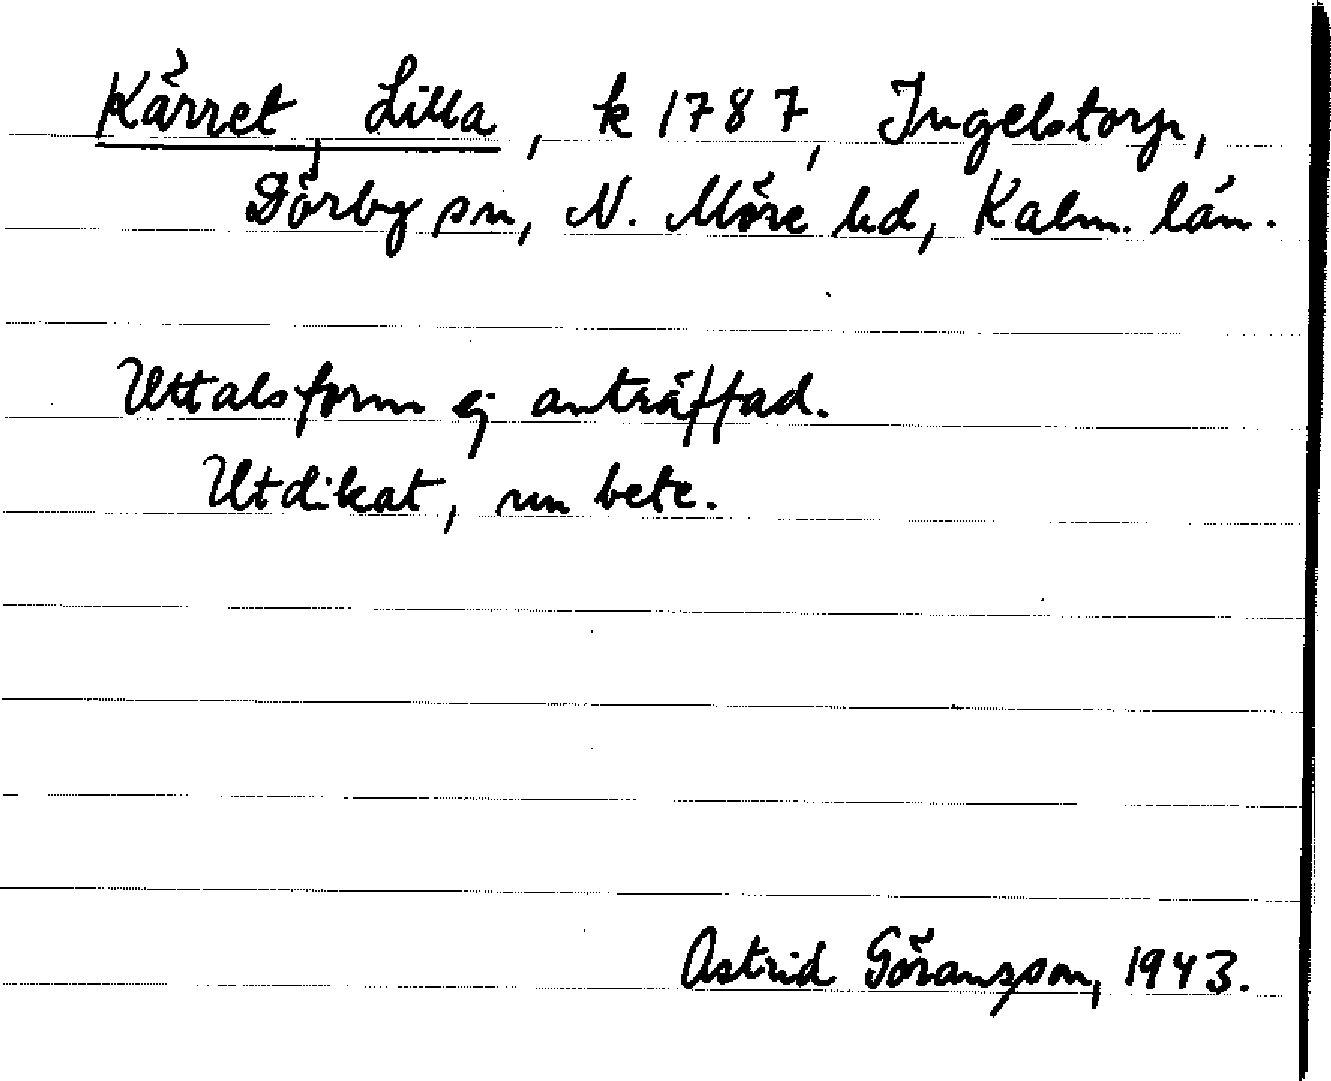 Kärret, Lilla, k 1787, Ingelstorp,
Dörby sn, N. Möre hd, Kalm. län.
Uttalsform ej anträffad.
Utdikat, nu bete.
Astrid Göransson, 1943.